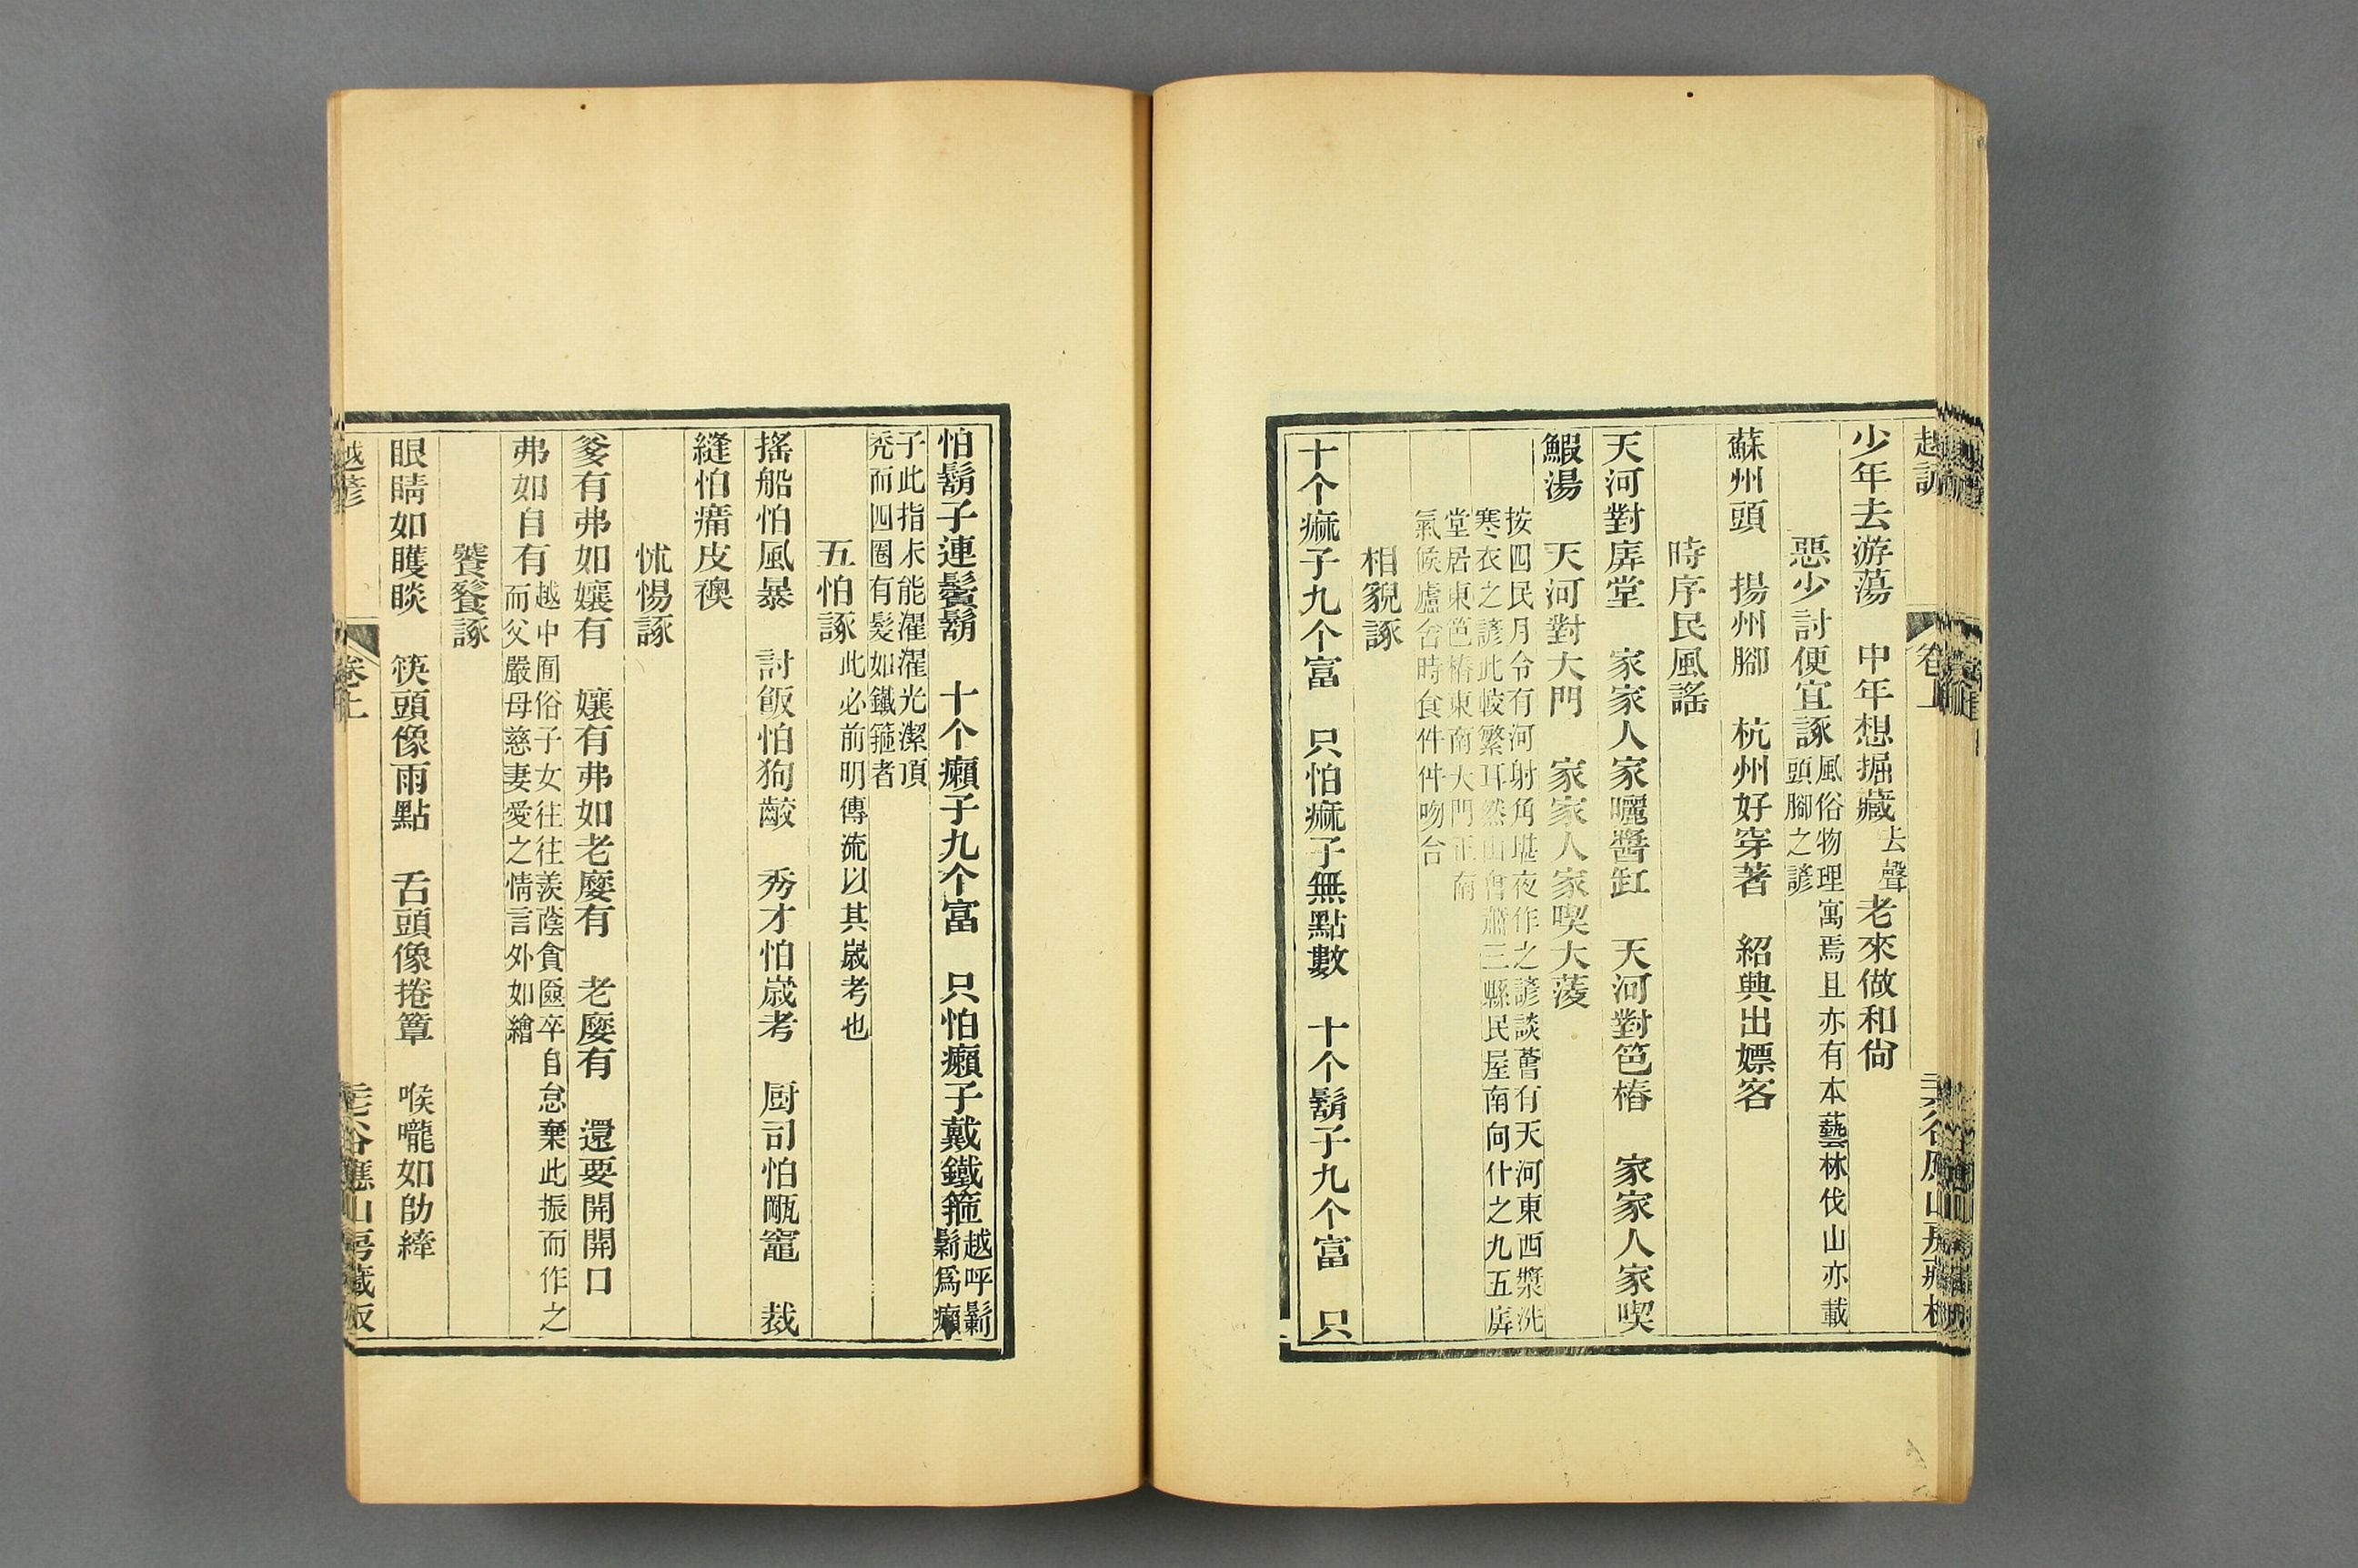 越諺 卷上
少年去游蕩 中年想掘藏去聲老來做和尙
惡少討便宜諑風俗物理寓焉且亦有本藝林伐山亦載
頭腳之諺
蘇州頭 揚州腳 杭州好穿著 紹興出嫖客
時序民風謠
天河對庰堂 家家人家曬醬缸 天河對笆樁 家家人家喫
鰕湯 天河對大門 家家人家喫大菱
按四民月令有河射角堪夜作之諺談薈有天河東西漿洗
寒衣之諺此較繁耳然山會蕭三縣民屋南向什之九五庰
堂居東笆樁東南大門正南
氣候廬舍時食件件吻合
相貎諑
十个痲子九个富 只怕痲子無點數 十个鬍子九个富 只
怕鬍子連鬢鬍 十个癩子九个富 只怕癩子戴鐵箍越呼鬎
鬁爲癩
子此指朩能濯濯光潔頂
禿而四圈有髮如鐵箍者
五怕諑此必前明傳流以其崴考也
搖船怕風暴 討飯怕狗齩 秀才怕崴考 厨司怕㽃竈 裁
縫怕㾓皮襖
怵惕諑
爹有弗如孃有 孃有弗如老㜮有 老㜮有 還要開開口
弗如自有越中囿俗子女往往羨蔭貪匳卒自怠棄此振而作之
而父嚴母慈妻愛之情言外如繪
饕餮諑
眼睛如矆睒 筷頭像雨點 舌頭像捲簟 喉嚨如𠛎縴
越諺 卷上